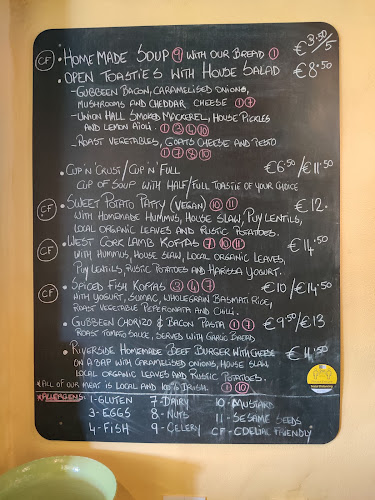 CF · HOMEMADE SOUP 9 WITH OUR BREAD 1 €3.50/5
· OPEN TOASTIE'S WITH HOUSE SALAD €8.50
- GUBBEEN BACON, CARAMELISED ONIONS,
MUSHROOMS AND CHEDDAR CHEESE 1 7
- UNION HALL SMOKED MACKEREL, HOUSE PICKLES
AND LEMON AIOLI. 1 3 4 10
- ROAST VEGETABLES, GOATS CHEESE AND PESTO
1 7 8 10
· CUP 'N' CRUST / CUP 'N' FULL €6.50/€11.50
CUP OF SOUP WITH HALF/FULL TOASTIE OF YOUR CHOICE
CF · SWEET POTATO PATTY (VEGAN) 10 11 €12.
WITH HOMEMADE HUMMUS, HOUSE SLAW, PUY LENTILS,
LOCAL ORGANIC LEAVES AND RUSTIC POTATOES.
CF · WEST CORK LAMB KOFTAS 7 10 11 €14.50
WITH HUMMUS, HOUSE SLAW, LOCAL ORGANIC LEAVES,
PUY LENTILS, RUSTIC POTATOES AND HARISSA YOGURT.
CF · SPICED FISH KOFTAS 3 4 7 €10/€14.50
WITH YOGURT, SUMAC, WHOLEGRAIN BASMATI RICE,
ROAST VEGETABLE PEPERONATA AND CHILI.
· GUBBEEN CHORIZO & BACON PASTA 1 7 €9.50/€13
ROAST TOMATO SAUCE, SERVED WITH GARLIC BREAD
· RIVERSIDE HOMEMADE BEEF BURGER WITH CHEESE €14.50
ON A BAP WITH CARAMELISED ONIONS, HOUSE SLAW,
LOCAL ORGANIC LEAVES AND RUSTIC POTATOES.
* ALL OF OUR MEAT IS LOCAL AND 100% IRISH. 1 10
* ALLERGENS: 1 - GLUTEN 7 - DAIRY 10 - MUSTARD
3 - EGGS 8 - NUTS 11 - SESAME SEEDS
4 - FISH 9 - CELERY CF - COELIAC FRIENDLY